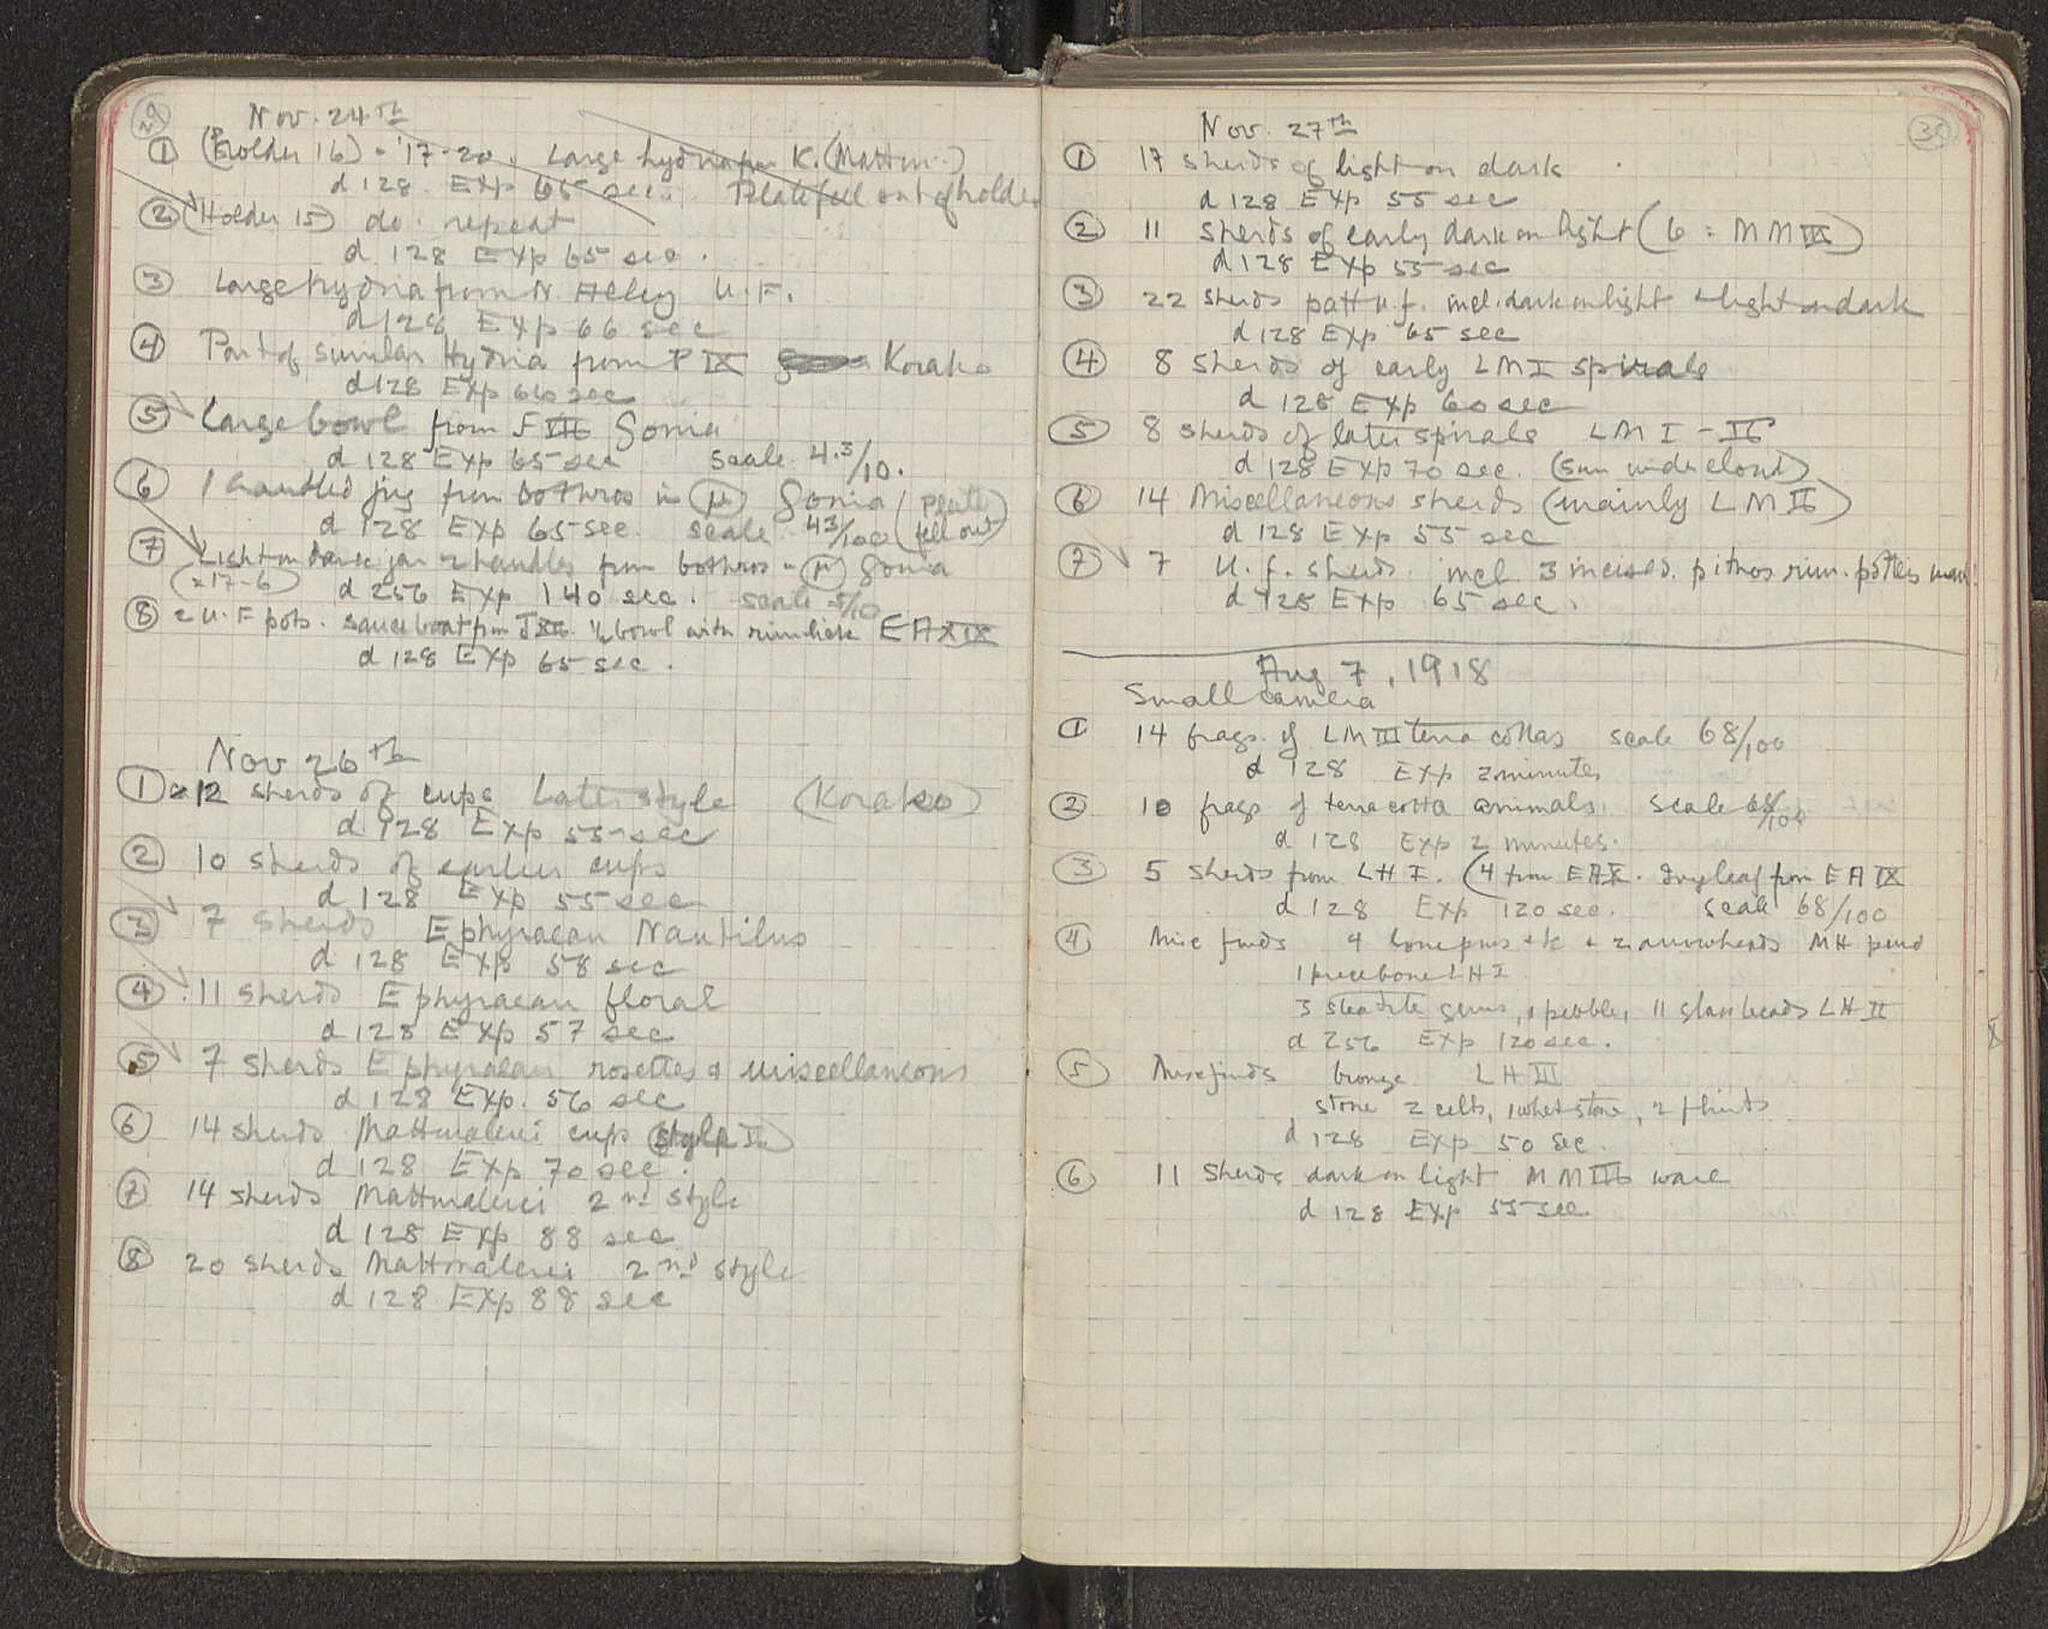 29
Nov. 24th
① (Holder 16) - '17-20. Large hydria from K. (Mattm.)
d 128. Exp 65 sec. Plate fell out of holder
② (Holder 15) do. repeat
d 128 Exp 65 sec.
③ Large hydria from N. Alley U.F.
d 128 Exp 66 sec
④ Part of similar Hydria from P IX Korako
d 128 Exp 66 sec
⑤ Large bowl from Gonia
d 128 Exp 65 sec scale 4.3/10.
⑥ 1 handled jug from bothros in μ Gonia (plate
d 128 Exp 65 sec. scale 43/100 fell out)
⑦ Light on dark jar 2 handles from bothros in μ Gonia
(217-6) d 256 Exp 140 sec. scale 5/10
⑧ 2 U.F pots. sauceboat from ½ bowl with rim EA XIX
d 128 Exp 65 sec.
Nov 26th
① 12 sherds of cups Later style (Korako)
d 128 Exp 55 sec
② 10 sherds of earlier cups
d 128 Exp 55 sec
③ 7 sherds Ephyraean Nautilus
d 128 Exp 58 sec
④ 11 sherds Ephyraean floral
d 128 Exp 57 sec
⑤ 7 sherds Ephyraean rosettes & miscellaneous
d 128 Exp. 56 sec
⑥ 14 sherds Mattmalerei cups (style I)
d 128 Exp 70 sec.
⑦ 14 sherds Mattmalerei 2nd style
d 128 Exp 88 sec
⑧ 20 sherds Mattmalerei 2nd style
d 128 Exp 88 sec
30
Nov. 27th
① 17 sherds of light on dark
d 128 Exp 55 sec
② 11 sherds of early dark on light (6 = MM III)
d 128 Exp 55 sec
③ 22 sherds patt u.f. incl. dark on light & light on dark
d 128 Exp 65 sec
④ 8 sherds of early LM I spirals
d 128 Exp 60 sec
⑤ 8 sherds of later spirals LM I - II
d 128 Exp 70 sec. (sun under cloud)
⑥ 14 Miscellaneous sherds (mainly LM II)
d 128 Exp 55 sec
⑦ 7 U.f. sherds. incl. 3 incised. pithos rim. potters mark
d 128 Exp 65 sec.
Aug 7, 1918
Small camera
① 14 frags. of LM III terra cottas scale 68/100
d 128 Exp 2 minutes
② 10 frags of terracotta animals. scale 68/100
d 128 Exp 2 minutes.
③ 5 sherds from LH I. (4 from EA X. Ivy leaf from EA IX
d 128 Exp 120 sec. scale 68/100
④ Misc finds 4 bone pins etc + 2 arrowheads MH period
1 piece bone LH I
3 steatite gems, 1 pebble, 11 glass beads LH II
d 256 Exp 120 sec.
⑤ Misc finds bronze LH III
stone 2 celts, 1 whetstone, 2 flints
d 128 Exp 50 sec.
⑥ 11 sherds dark on light MM III ware
d 128 Exp 55 sec